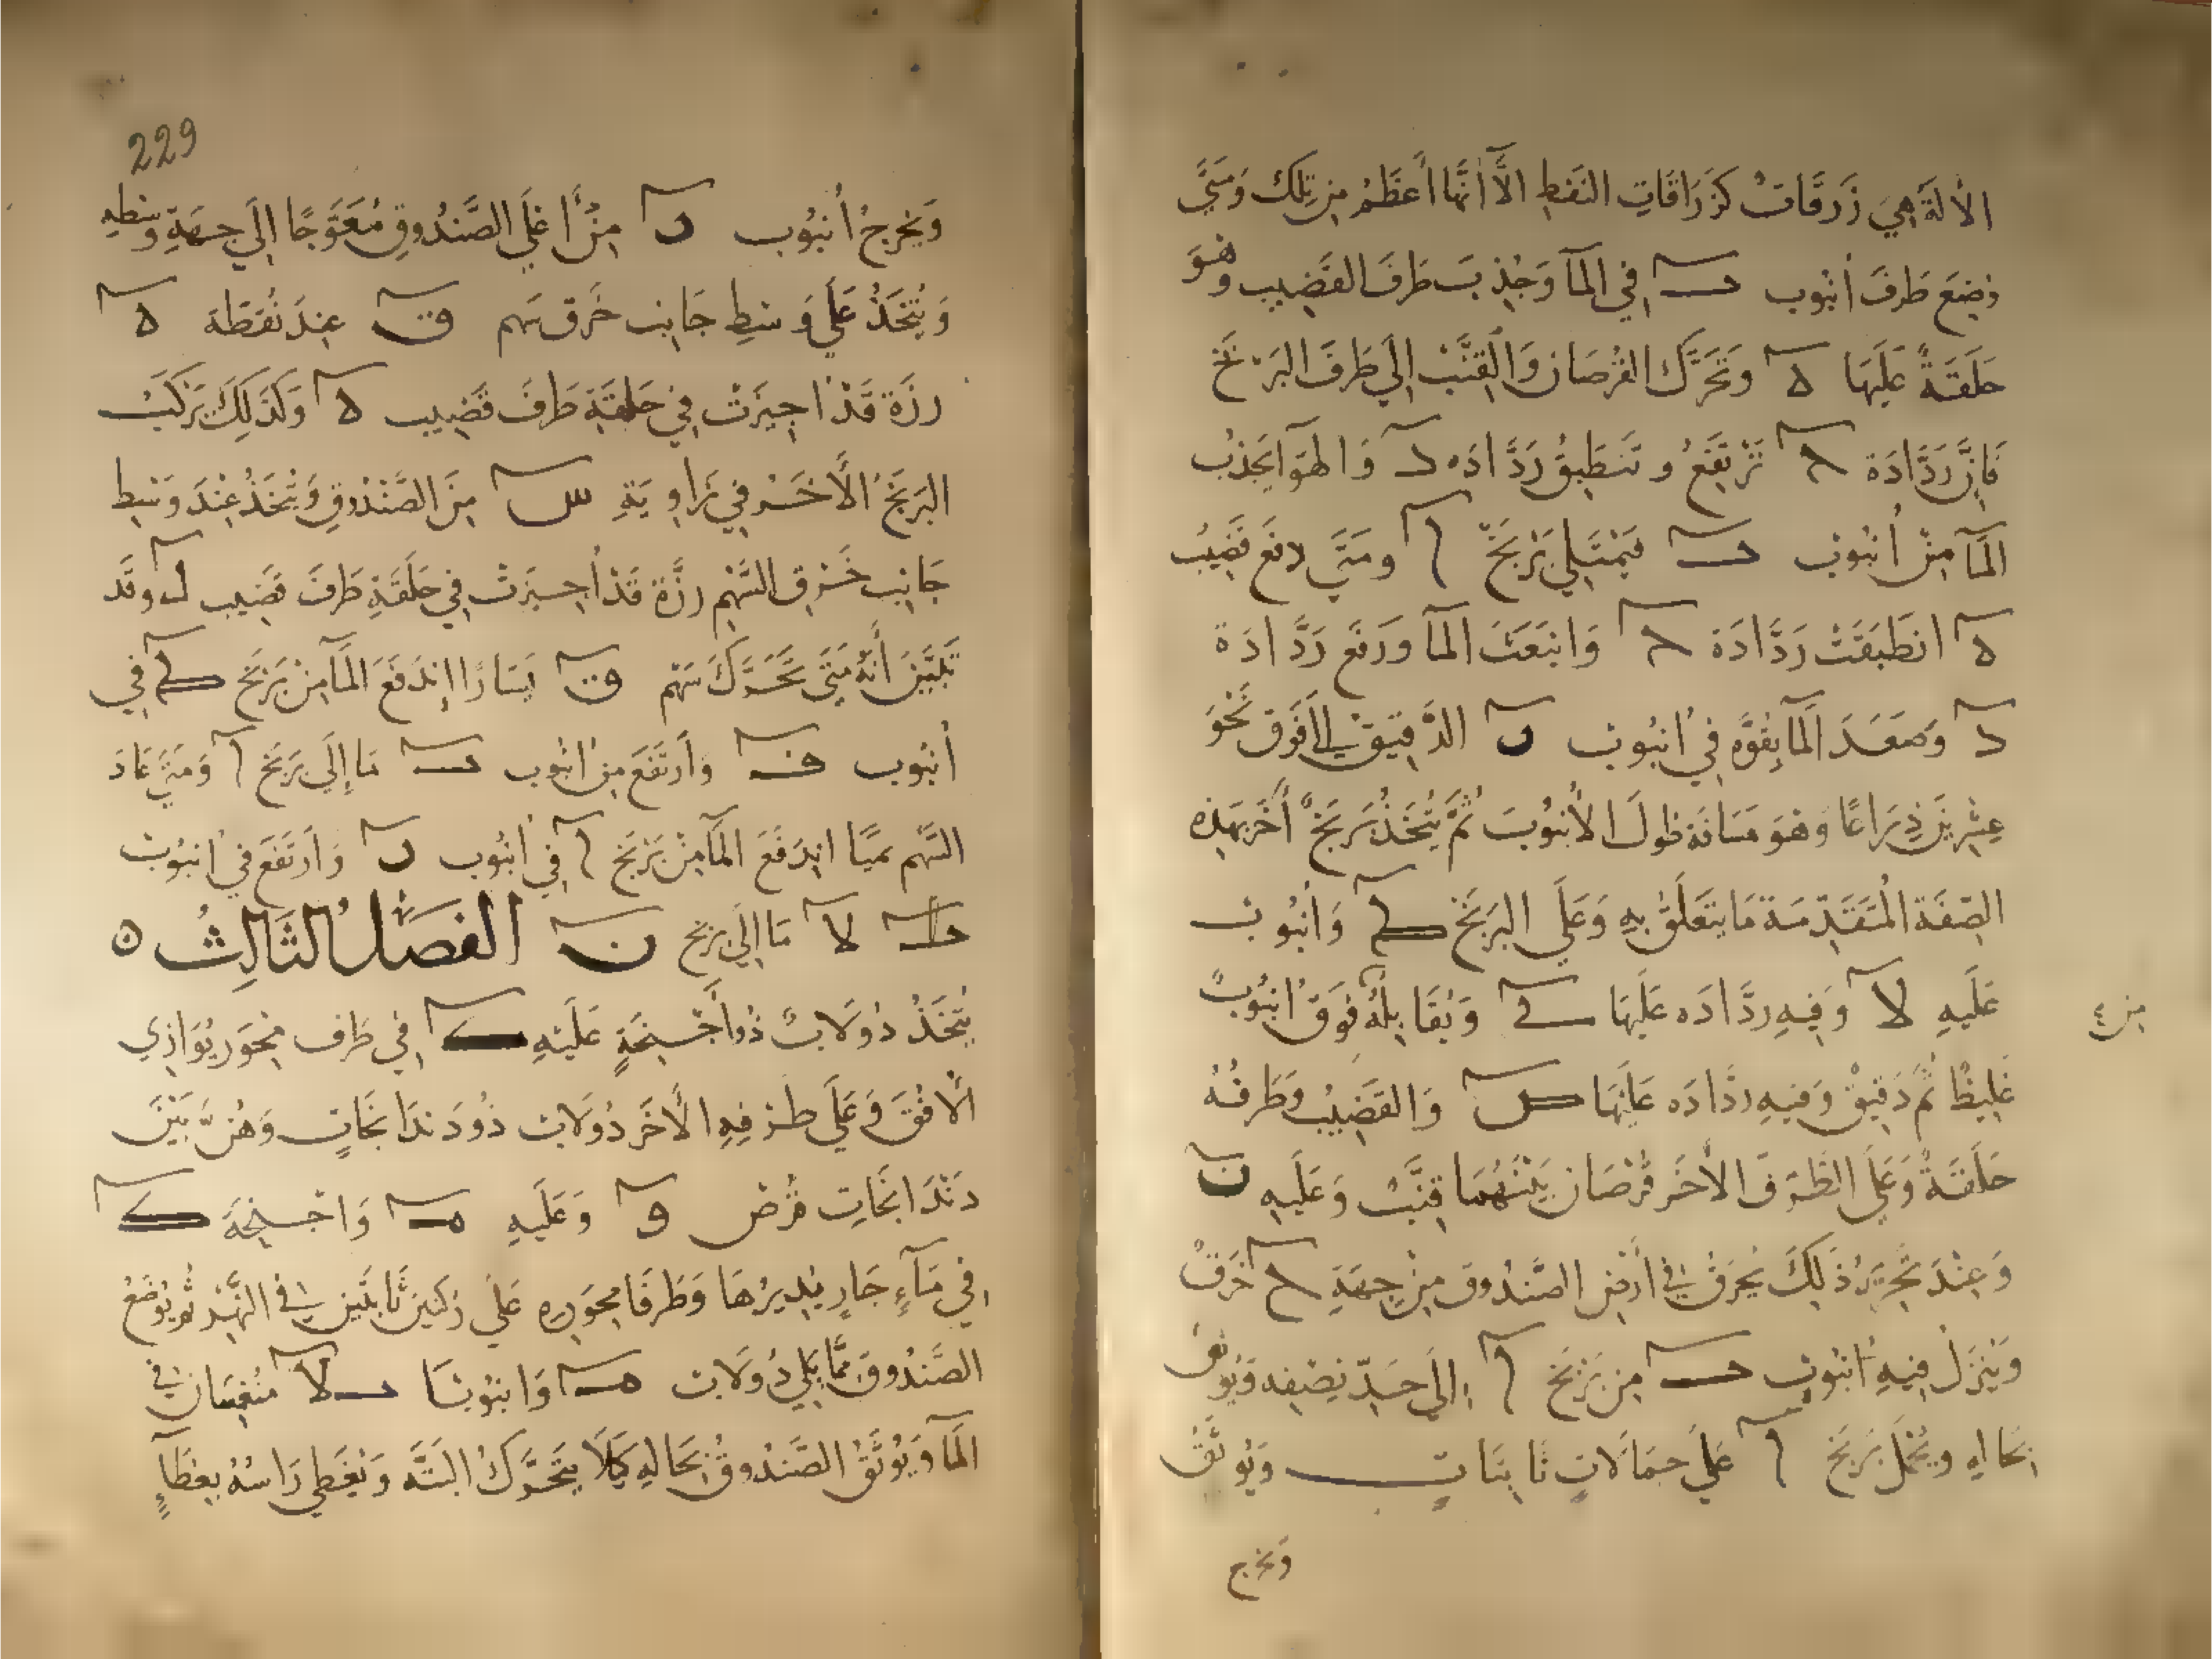 الألَةُ هِيَ زَرَّقَاتٌ كَزَرَّاقَاتِ النَفطِ الَّا انَّهَا أَعظَمُ مِن تِلك وَمَتَي
وُضِعَ طَرفَ أنبُوب ب في المآ وَجُذِبَ طَرفَ القَضِيب وهُوَ
حَلقَةٌ عَلَيهَا ه وَتَحَرَّكَ القُرصَان وَالقِنَّب الي طَرفَ البَربَخ
فَإنَّ رَدَّادَة ح تَرتَفَعُ و تَنطَبِقُ رَدَّادَه د وَالهَوَا يَجذِبُ
المَآ مِنْ أنبُوب ب فَيَمتَلِي بَربَخ ا ومَتَي دفَع قَضِيب
ه انطَبَقَتْ رَدَّادَة ح وَانبَعَثَ المآ وَرَفَع رَدَّادَة
د وَصَعَدَ المَآ بِقُوَّه في أنبُوب ر الدَّقِيق الي فَوق نَحوَ
عِشرِينَ ذِرَاعًا وَهُوَ مَسَافَة طُولَ الأُنبُوبَ ثُمَّ يُتَّخَذُ بَربَخٌ أَخَر بهَذِه
الصِفَة المُتَقَدِّمَة مَا يَتَعَلَّقُ بِهِ وَعَلَي البَربَخ ك وَأنبُوب
عَلَيهِ لا وَفِيهِ رَدَّادَه عَلَيهَا ي وَيُقَابِلُهُ فَوقَ أُنبُوبٌ
مِن
غَلِيظٌ ثُم دَقِيقٌ وَفيهِ ردَّادَه عَلَيهَا ص وَالقَضِيب وَطَرفُهُ
حَلقَةٌ وَعَلَي الطَرَفَ الأخَر قُرصَان بَينَهُمَا قِنَّب وَعَليه ن
وَعِندَ تَحرِيرُ ذَلِكَ يُخرَقُ في أرضِ الصَّندُوق مِنْ جِهَةِ ح خَرقٌ
وَيُنزَلُ فِيهِ أنبُوب ب مِن بَربَخ ا إلَي حَدِّ نِصفِه وَيُوثَق
بِحَالهِ ويُحمَل بَربَخ ا عَلَي حمَالَاتٍ ثَابِتَاتٍ وَيُوثَّق
وَيَخرج
229
وَيَخرجُ أنبُوب ر مِنْ أعْلَي الصَّندُوقِ مُعَوَّجًا الَي جِهَةِ وَسَطِهِ
وَيُتَّخَذُ عَلَي وَسَطِ جَانِب خَرق سَهم ق عِندَ نُقطَة ه
رزَة قَدْ اجِيزَتْ في حَلقَةِ طَرفَ قَضِيب ه وَكَذَلِكَ يُرَكَّبُ
البَربَخُ الأخَر في زَاوِيَةِ س مِنَ الصَّندُوقِ وَيُتَّخَذُ عِندَ وَسَطِ
جَانِب خَرقِ السَّهم رزَّة قَدْ أُجِيزَتْ في حَلقَةِ طَرفَ قَضِيب ل وَقَد
تَبَيَّنَ أنَّهُ مَتَي تَحَرَّكَ سَهم ق يَسَارًا إندَفَعَ المَآ مِنْ بَربَخ ك في
أنبُوب ف وَارتَفَعَ مِن أنبُوب ب مَا إلَي بَربَخ ا وَمَتَي عَادَ
السَّهم يَمِيًا اندَفَعَ المَآ مِنْ بَربَخ ا في أنبُوب ر وَارتَفَعَ في انبُوب
لا مَا الَي بربخ ن الفَصْلُ الثَالِثُ ه
يُتَّخَذُ دُولَابٌ ذُو أَجنِحَةٍ عَلَيهِ ك في طَرف مِحوَر يُوَازِي
الأُفُقَ وَعَلَي طرفِهِ الأخَر دُولَاب ذُو دَندَانجَاتٍ وَهُنَّ بَيْنَ
دَندَانجَاتِ قُرص و وَعَلَيهِ م وَاجنِحَة ك
فِي مَآءٍ جَارٍ يُدِيرُهَا وَطَرفَا مِحوَرِه عَلَي رُكنَينِ ثَابِتَينِ في النَّهر ثُم يُوضَعُ
الصَّندُوقَ مِمَّا يَلِي دُولَاب م وَانبُوبَا ب لا مُنغَمِسَان في
المَآ وَيُوثَّقُ الصَّندُوقُ بِحَالِهِ كَيلَا يَتَحَرَّكُ البَتَّه وَيُغَطي رَاسُهُ بِغِطَآءٍ